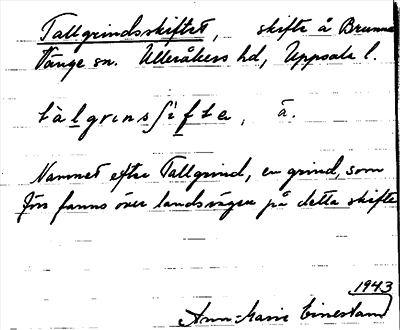 Tallgrindsskiftet, skifte å Brunna
Vänge sn. Ulleråkers hd, Uppsala l.
tàlgrinsʃifte, å.
Namnet efter Tallgrind, en grind, som
förr fanns över landsvägen på detta skifte
1943
Ann-Marie